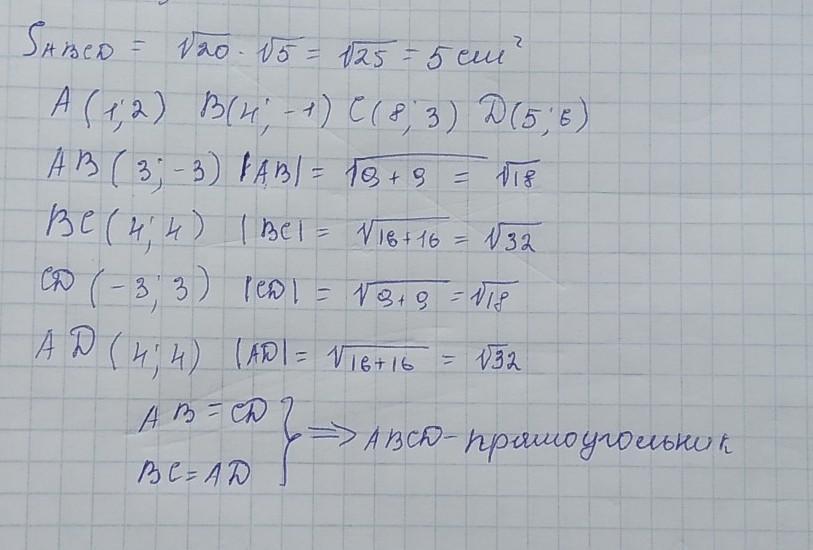 S_ABCD = √20 · √5 = √25 = 5 см²
A(1;2) B(4;-1) C(8;3) D(5;6)
AB(3;-3) |AB| = √9+9 = √18
BC(4;4) |BC| = √16+16 = √32
CD(-3;3) |CD| = √9+9 = √18
AD(4;4) |AD| = √16+16 = √32
AB = CD
BC = AD } ⇒ ABCD - прямоугольник